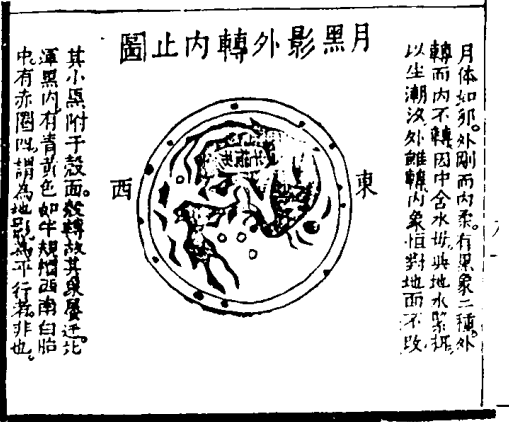 月黑影外轉内止圖
月体如卵。外剛而内柔。有黑象二種。外
轉而内不轉因中含水與地水緊
以生潮汐外雖轉内象恒對地而不改
東
西
其小点附于殼面。殼轉故其象屢迁北
渾黑内有青黃色如牛規帽西南白胎
中有赤圈四謂為地影為不行者非也。